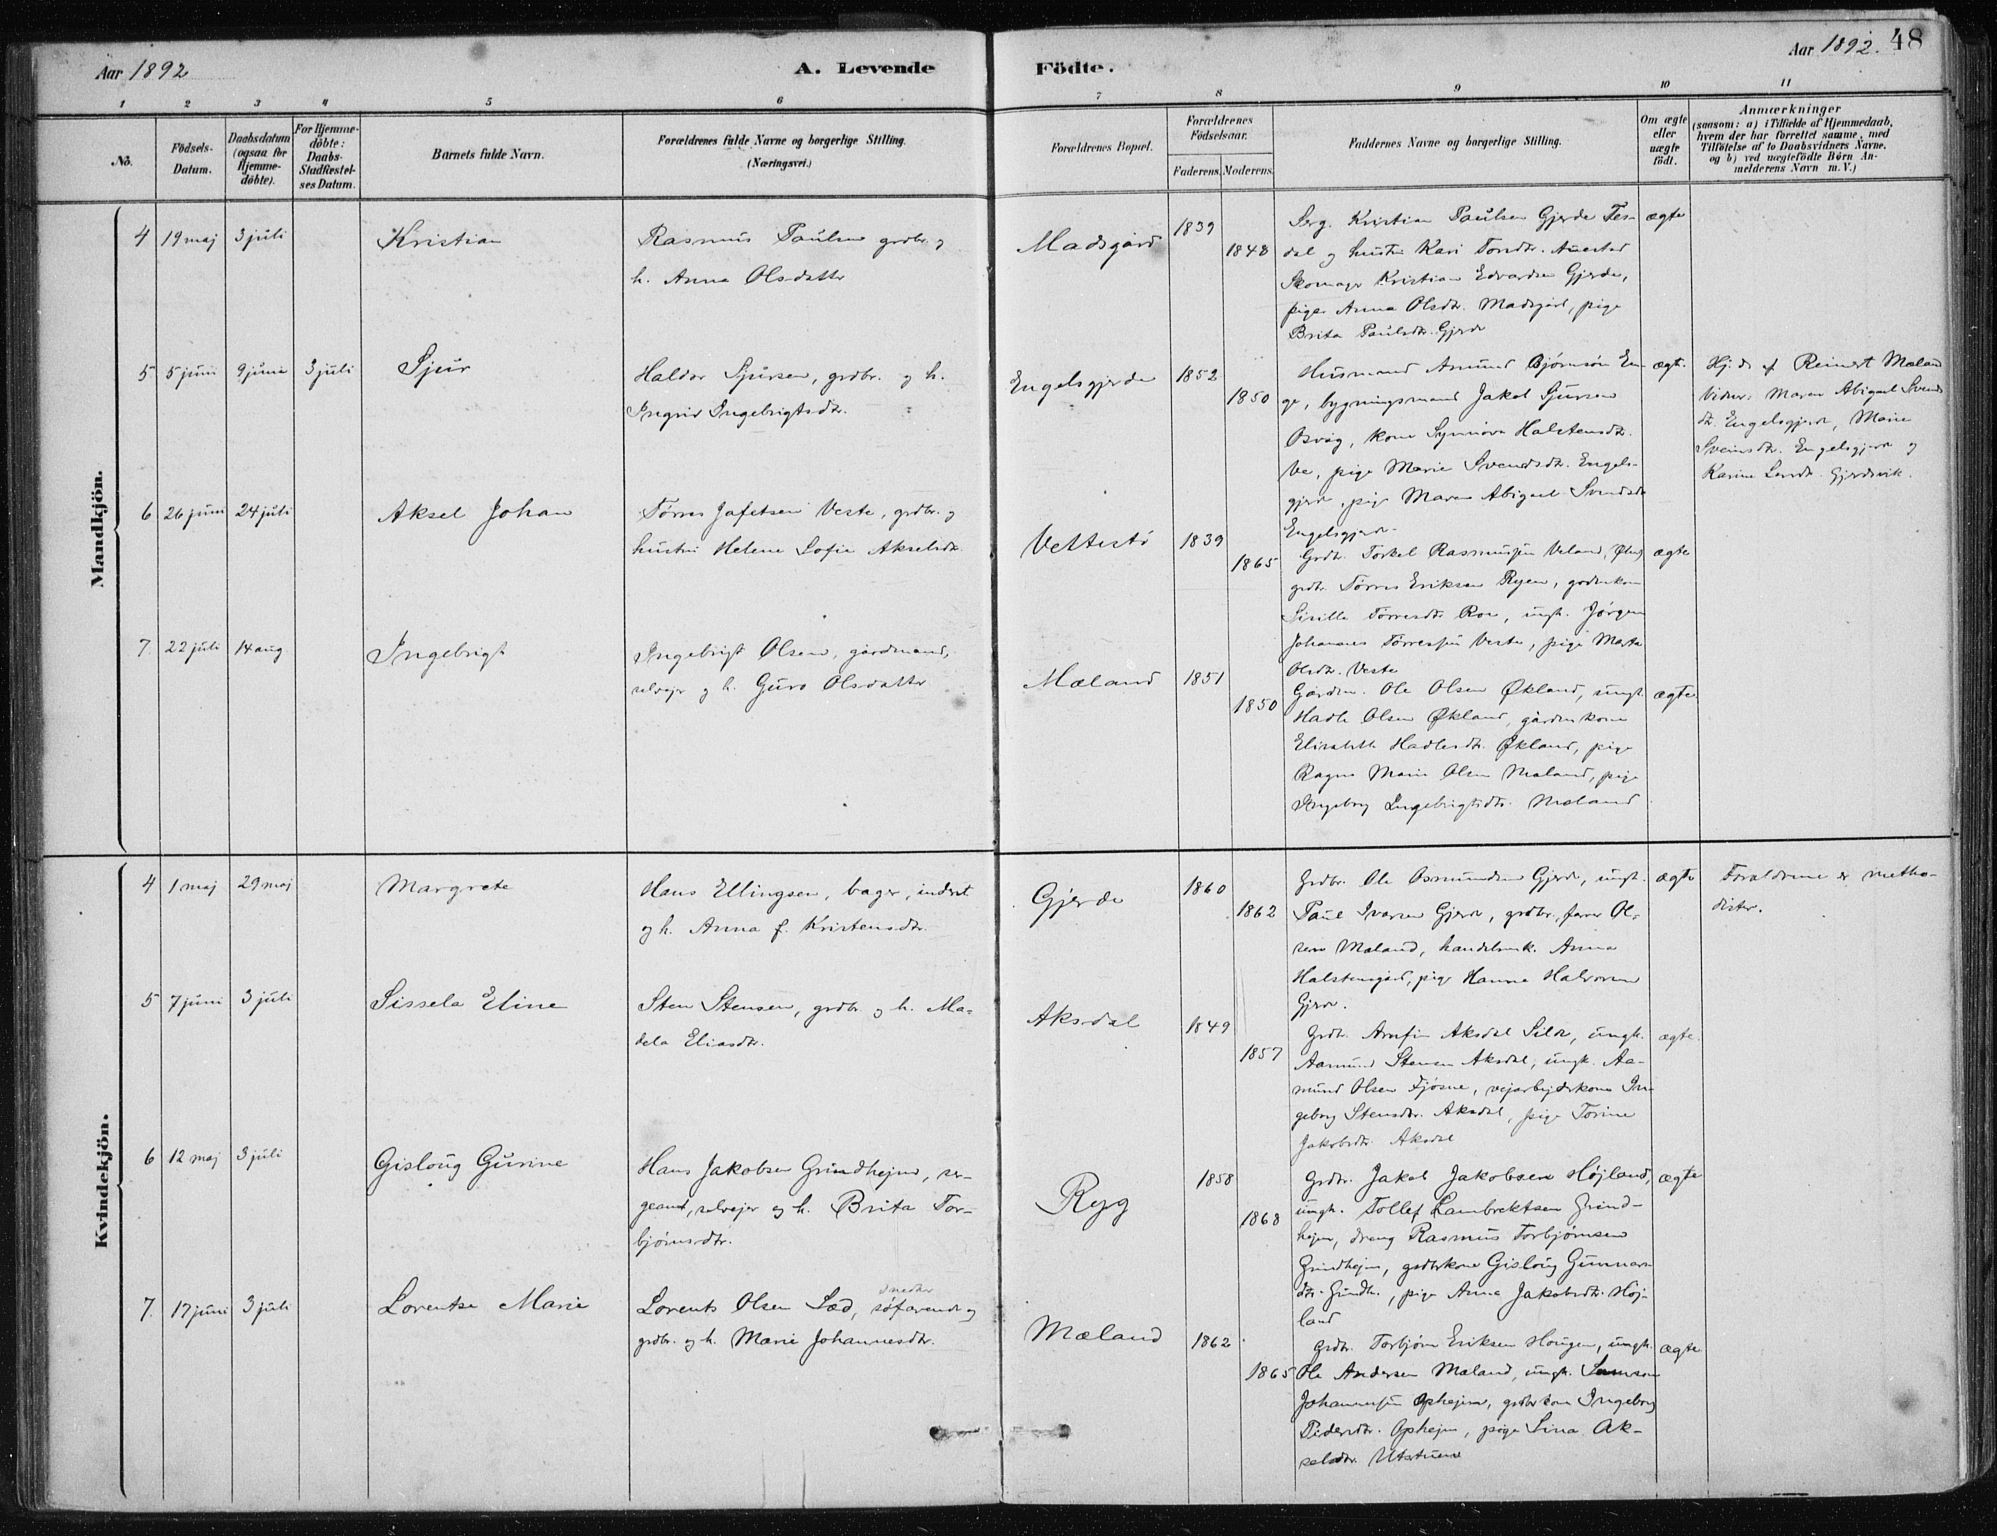 Aar 1892
A. Levende
Födte.
Aar 1892.
48
1
2
3
4
5
6
7
8
9
10
11
No.
Födsels-
Datum.
Daabsdatum
(ogsaa for
Hjemme-
döbte).
For Hjemme-
döbte:
Daabs-
Stadfæstel-
ses Datum.
Barnets fulde Navn.
Forældrenes fulde Navne og borgerlige Stilling.
(Næringsvei.)
Forældrenes Bopæl.
Forældrenes
Födselsaar.
Faderens.
Moderens.
Faddernes Navne og borgerlige Stilling.
Om ægte
eller
uægte
födt.
Anmærkninger
(saasom: a) i Tilfælde af Hjemmedaab,
hvem der har forrettet samme, med
Tilföielse af to Daabsvidners Navne,
og b) ved uægtefödte Börn An-
melderens Navn m. V.)
Mandkjön.
4
19 maj
3 juli
Kristian
Rasmus Paulsen grdbr. og
h. Anna Olsdatter
Madsgård
1839
1848
Serg. Kristian Paulsen Gjerde Tes-
dal og hustru Kari Tordtr. Auestad
Skomager Kristian Edvardsen Gjerde,
pige Anna Olsdtr. Madsgård, pige
Brita Paulsdtr. Gjerde
ægte
5
5 juni
9 juni
3 juli
Sjur
Haldor Sjursen, grdbr. og h.
Ingrid Ingebrigtsdtr.
Engelsgjerde
1852
1850
Husmand Amund Bjørnsøn En-
ge, bygningsmand Jakob Sjursen
Osvåg, kone Synnøva Halstensdtr.
Ve, pige Marie Svendsdtr. Engels-
gjerde, pige Maren Abigael Svendsdtr
Engelsgjerde.
ægte.
Hj. d. af Reinert Mæland
Vidner: Maren Abigael Svends
dtr. Engelsgjerde, Marie
Svendsdtr. Engelsgjerde og
Karine Gjerdsvik.
6
26 juni
24 juli
Aksel Johan
Tørres Jafetsen Veste, grdbr. og
hustru Helene Sofie Akselsdtr.
Vestestø
1839
1865
Grdbr. Torkel Rasmussen Veland, Ølen,
grdbr. Tørres Eriksen Ryen, grdbrkone
Sisille Tørresdtr. Roe, ungk. Jörgen
Johannes Tørressen Veste, pige Marta
Olsdtr. Veste
ægte
7.
22 juli
14 aug
Ingebrigt
Ingebrigt Olsen, gårdmand,
selvejer og h. Guro Olsdatter
Mæland
1851
1850
Gårdm. Ole Olsen Økland, ungk.
Hadle Olsen Økland, gårdmkone
Elisabeth Hadlesdtr. Økland, pige
Ragna Marie Olsen Mæland, pige
Ingeborg Ingebrigtsdtr. Mæland
ægte
Kvindekjön.
4
1 maj
29 maj
Margrete
Hans Ellingsen, bager, inderst
og h. Anna f. Kristensdtr.
Gjerde
1860
1862
Grdbr. Ole Osmundsen Gjerde, ungk.
Paul Ivarsen Gjerde, grdbr. farer Ol-
sen Mæland, handelsmk. Anna
Halstensgård, pige Hanna Halvorsen
Gjerde.
ægte
Forældrene er metho-
dister.
5
7 juni
3 juli
Sissela Eline
Sten Stensen, grdbr. og h. Ma-
dela Eliasdtr.
Aksdal
1849
1857
Grdbr. Arnfin Aksdal Silde, ungk.
Aamund Stensen Aksdal, ungk. Aa-
mund Olsen Fjøsne, vejarbejderkone In-
geborg Stensdtr. Aksdal, pige Torine
Jakobsdtr. Aksdal
ægte.
6
12 maj
3 juli
Gislaug Gurine
Hans Jakobsen Grindhejm, ser-
geant, selvejer og h. Brita Tor-
bjørnsdtr.
Ryg
1858
1868
Grdbr. Jakob Jakobsen Højland,
ungk. Tollef Lambrektsen Grind-
hejm, dreng Rasmus Torbjørnsen
Grindhejm, grdbrkone Gislaug Gunnars-
dtr. Grindh., pige Anna Jakobsdtr. Høj-
land
ægte
7.
17 juni
3 juli
Lorentse Marie
Lorents Olsen Sæd, snedker søfarende og
grdbr. og h. Marie Johannesdtr.
Mæland
1862
1865
Grdbr. Torbjørn Eriksen Hougen, ungk.
Ole Andersen Mæland, ungk. Samson
Johannessen Ophejm, grdbrkone Ingeborg
Pedersdtr. Ophejm, pige Sina Ak-
selsdtr. Utstuen
ægte